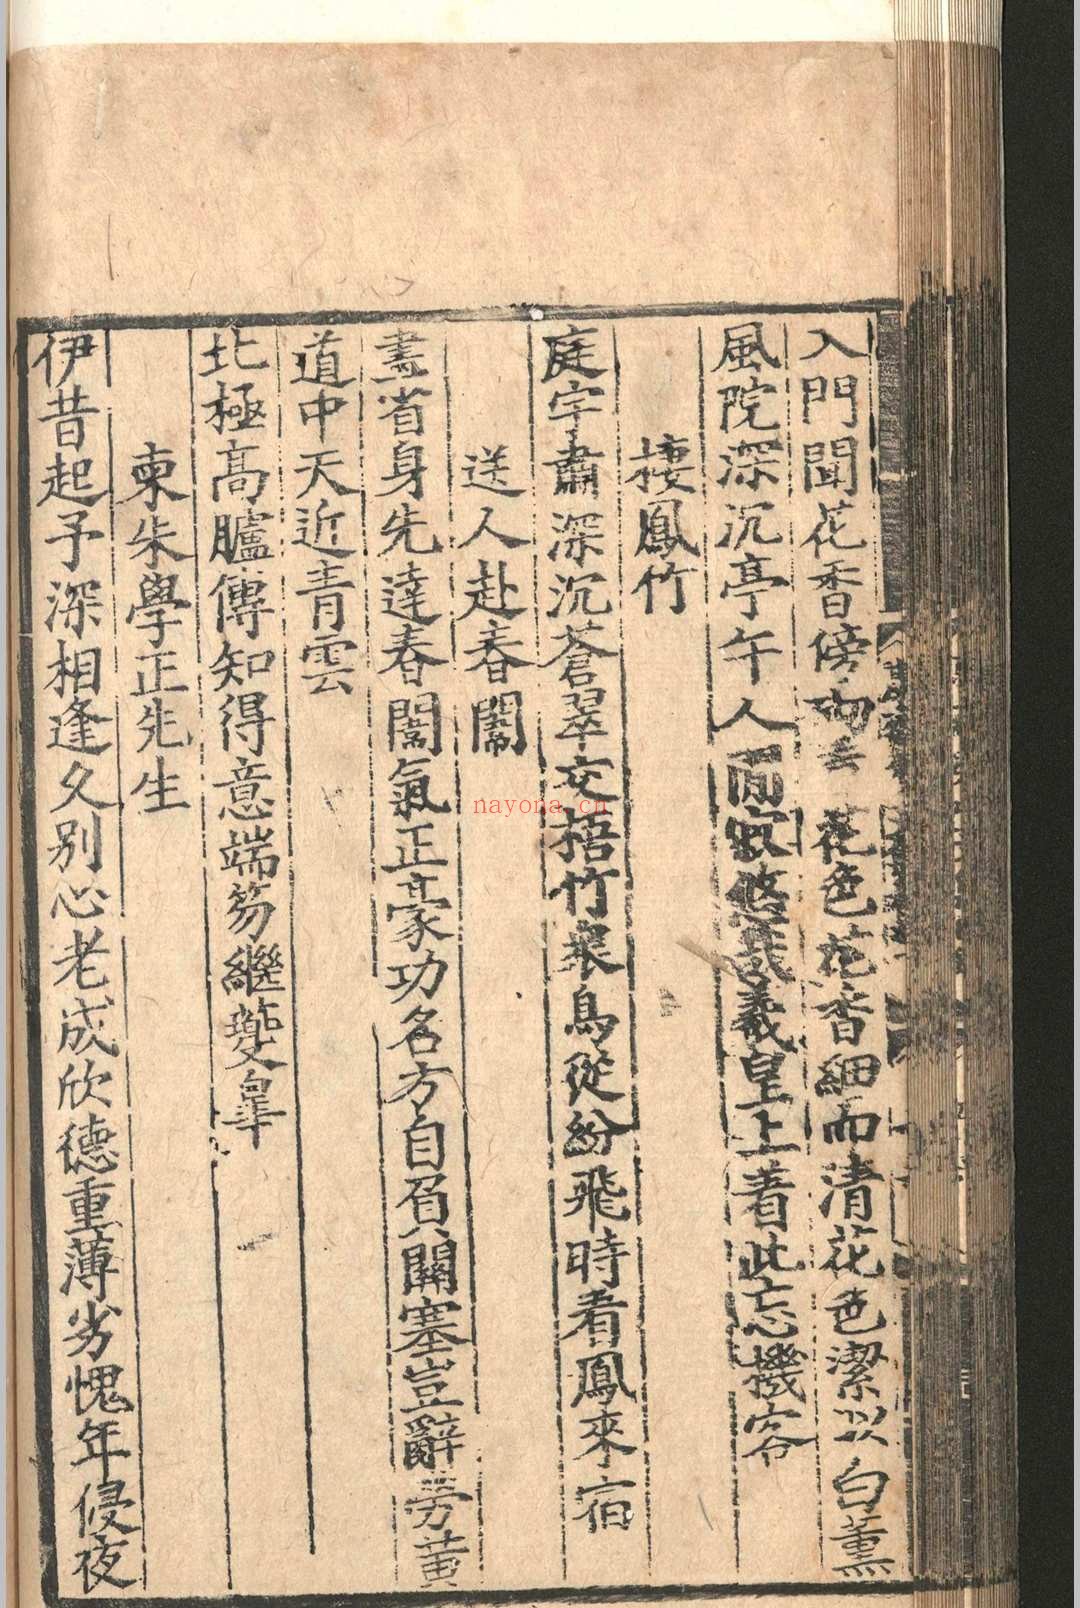 入門聞花香傍 花色花香細而清花色潔以白薰
風院深沉亭午人 寂悠 羲皇上着此忘機客
棲鳳竹
庭宇肅深沉蒼翠交梧竹衆鳥從紛飛時看鳳來宿
送人赴春闈
畫省身先達春闈氣正豪功名方自負關塞豈辭勞黃
道中天近青雲
北極高臚傳知得意端笏繼夔皐
柬朱學正先生
伊昔起予深相逢久別心老成欣德重薄劣愧年侵夜
nayona.cn